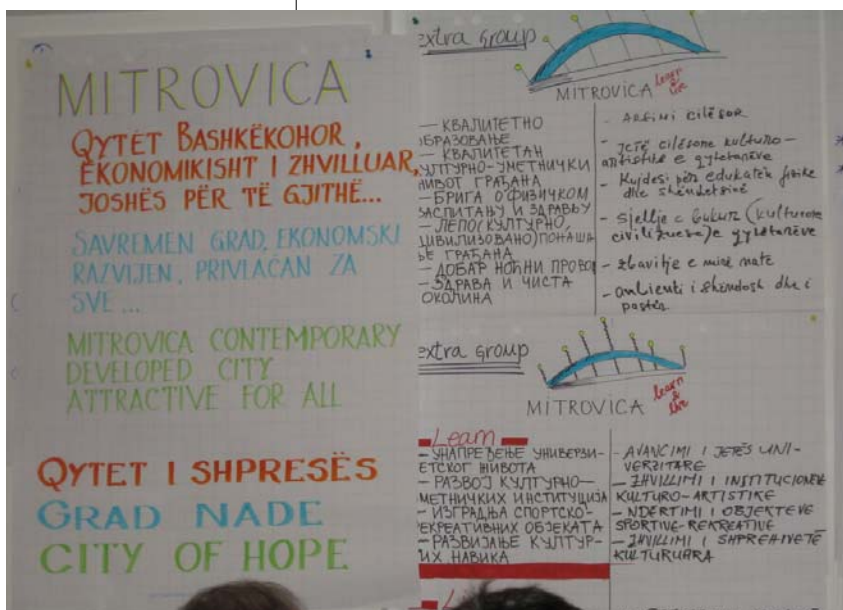 MITROVICA
QYTET BASHKËKOHOR,
EKONOMIKISHT I ZHVILLUAR,
JOSHËS PËR TË GJITHË...
SAVREMEN GRAD, EKONOMSKI
RAZVIJEN, PRIVLAČAN ZA
SVE ...
MITROVICA CONTEMPORARY
DEVELOPED CITY
ATTRACTIVE FOR ALL
QYTET I SHPRESËS
GRAD NADE
CITY OF HOPE
extra group
MITROVICA learn & live
— КВАЛИТЕТНО
ОБРАЗОВАЊЕ
— КВАЛИТЕТАН
КУЛТУРНО-УМЕТНИЧКИ
ЖИВОТ ГРАЂАНА
— БРИГА О ФИЗИЧКОМ
ВАСПИТАЊУ И ЗДРАВЉУ
— ЛЕПО (КУЛТУРНО,
ЦИВИЛИЗОВАНО) ПОНАША
ЊЕ ГРАЂАНА
— ДОБАР НОЋНИ ПРОВОД
— ЗДРАВА И ЧИСТА
ОКОЛИНА
- ARSIMI cilësor
- jetë cilësore kulturo-
artistike e qytetarëve
- Kujdesi për edukatën fizike
dhe shëndetsinë
- Sjellje e bukur (kulturore
civilizuese) e qytetarëve
- zbavitje e mirë nate
- ambienti i shëndosh dhe i
pastër
extra group
MITROVICA learn & live
Learn
— УНАПРЕЂЕЊЕ УНИВЕРЗИ-
ТЕТСКОГ ЖИВОТА
— РАЗВОЈ КУЛТУРНО-
УМЕТНИЧКИХ ИНСТИТУЦИЈА
— ИЗГРАДЊА СПОРТСКО-
РЕКРЕАТИВНИХ ОБЈЕКАТА
— РАЗВИЈАЊЕ КУЛТУР-
НИХ НАВИКА
- AVANCIMI I JETËS UNI-
VERZITARE
- ZHVILLIMI I INSTITUCIONEVE
KULTURO-ARTISTIKE
- NDËRTIMI I OBJEKTEVE
SPORTIVE-REKREATIVE
- ZHVILLIMI I SHPREHIVETË
KULTURUARA